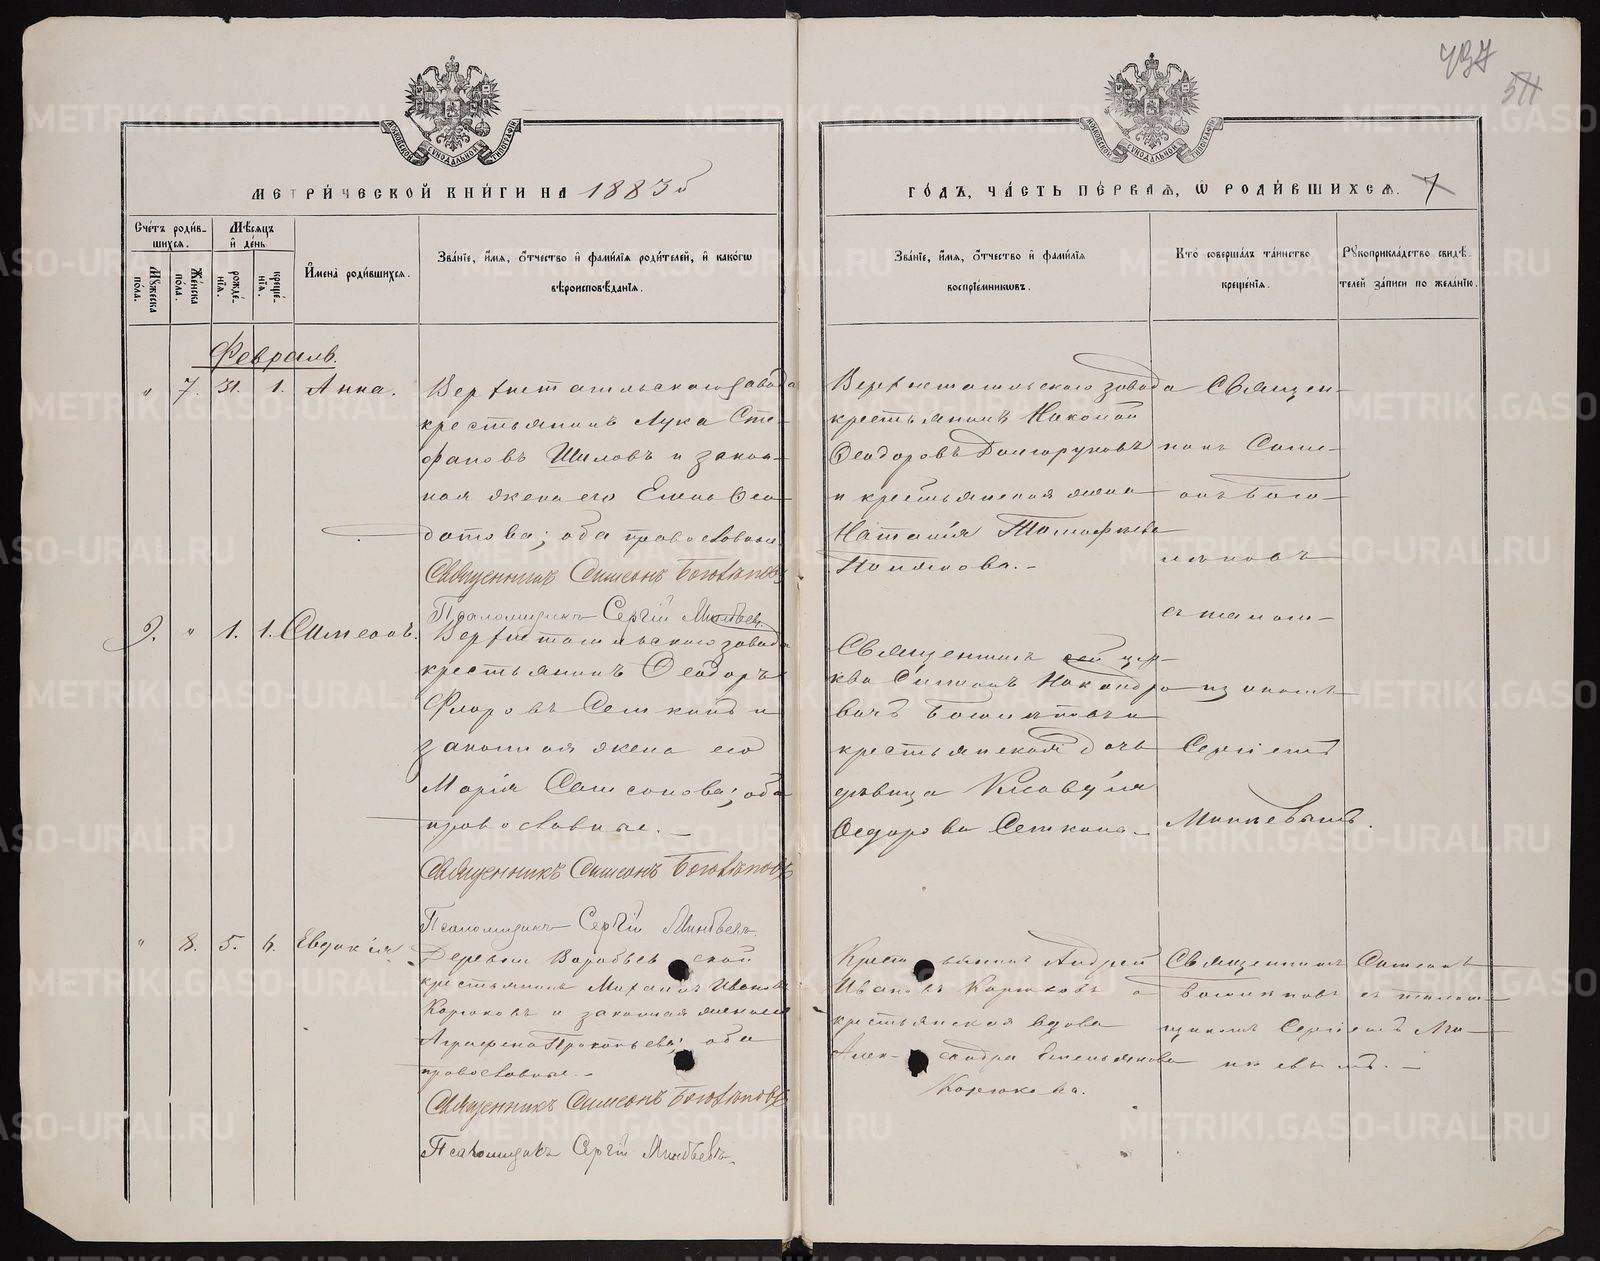 437
511
МОСКОВСКОЙ СѴНОДАЛЬНОЙ ТИПОГРАФІИ
МОСКОВСКОЙ СѴНОДАЛЬНОЙ ТИПОГРАФІИ
МЕТРИ́ЧЕСКОЙ КНИ́ГИ НА 1883
ГО́ДЪ, ЧА́СТЬ ПЕ́РВАЯ, Ѿ РОДИ́ВШИХСЯ. 7
Сче́тъ роди́в-
шихся.
Мꙋжеска по́ла.
Же́нска по́ла.
Мѣ́сяцъ
и҆ де́нь
рожде́-
нїя.
креще́-
нїя.
И҆мена̀ роди́вшихся.
Зва́нїе, и҆́мя, ѻ҆́тчество и҆ фами́лїя роди́телей, и҆ како́гѡ
вѣроисповѣ́данїя.
Зва́нїе, и҆́мя, ѻ҆́тчество и҆ фами́лїя
воспрїе́мникѡвъ.
Кто̀ соверша́лъ та́инство
креще́нїя.
Рꙋкоприкла́дство свидѣ́-
телей за́писи по жела́нїю.
Февраль.
" 7. 31. 1. Анна.
Верхнетагильскаго завода
крестьянинъ Лука Сте-
фановъ Шиловъ и закон-
ная жена его Елена Ѳео-
дотова; оба православные.
Священникъ Симеонъ Боголѣповъ
Псаломщикъ Сергій
Верхнетагильскаго завода
крестьянинъ Николай
Ѳеодоровъ Долгоруковъ
и крестьянская жена
Наталія
Полякова.-
Священ-
никъ Симе-
онъ Бого-
лѣповъ
съ псалом-
щикомъ
Сергіемъ
9. " 1. 1. Симеонъ.
Верхнетагильскаго завода
крестьянинъ Ѳеодоръ
Флоровъ Селкинъ и
законная жена его
Марія Самсонова; оба
православные.-
Священникъ Симеонъ Боголѣповъ
Псаломщикъ Сергій
Священникъ сей цер-
кви Симеонъ Никандро-
вичъ Боголѣповъ и
крестьянская дочь
дѣвица Клавдія
Ѳедорова Селкина.-
" 8. 5. 6. Евдокія.
Деревни Воробьевской
крестьянинъ Михаилъ Ивановъ
Корюковъ и законная жена его
Агрипена Прокопьева; оба
православные.-
Священникъ Симеонъ Боголѣповъ
Псаломщикъ Сергій
Крестьянинъ Андрей
Ивановъ Корюковъ и
крестьянская вдова
Александра Емельянова
Корюкова.
Священникъ Симеонъ
Боголѣповъ съ псалом-
щикомъ Сергіемъ
METRIKI.GASO-URAL.RU